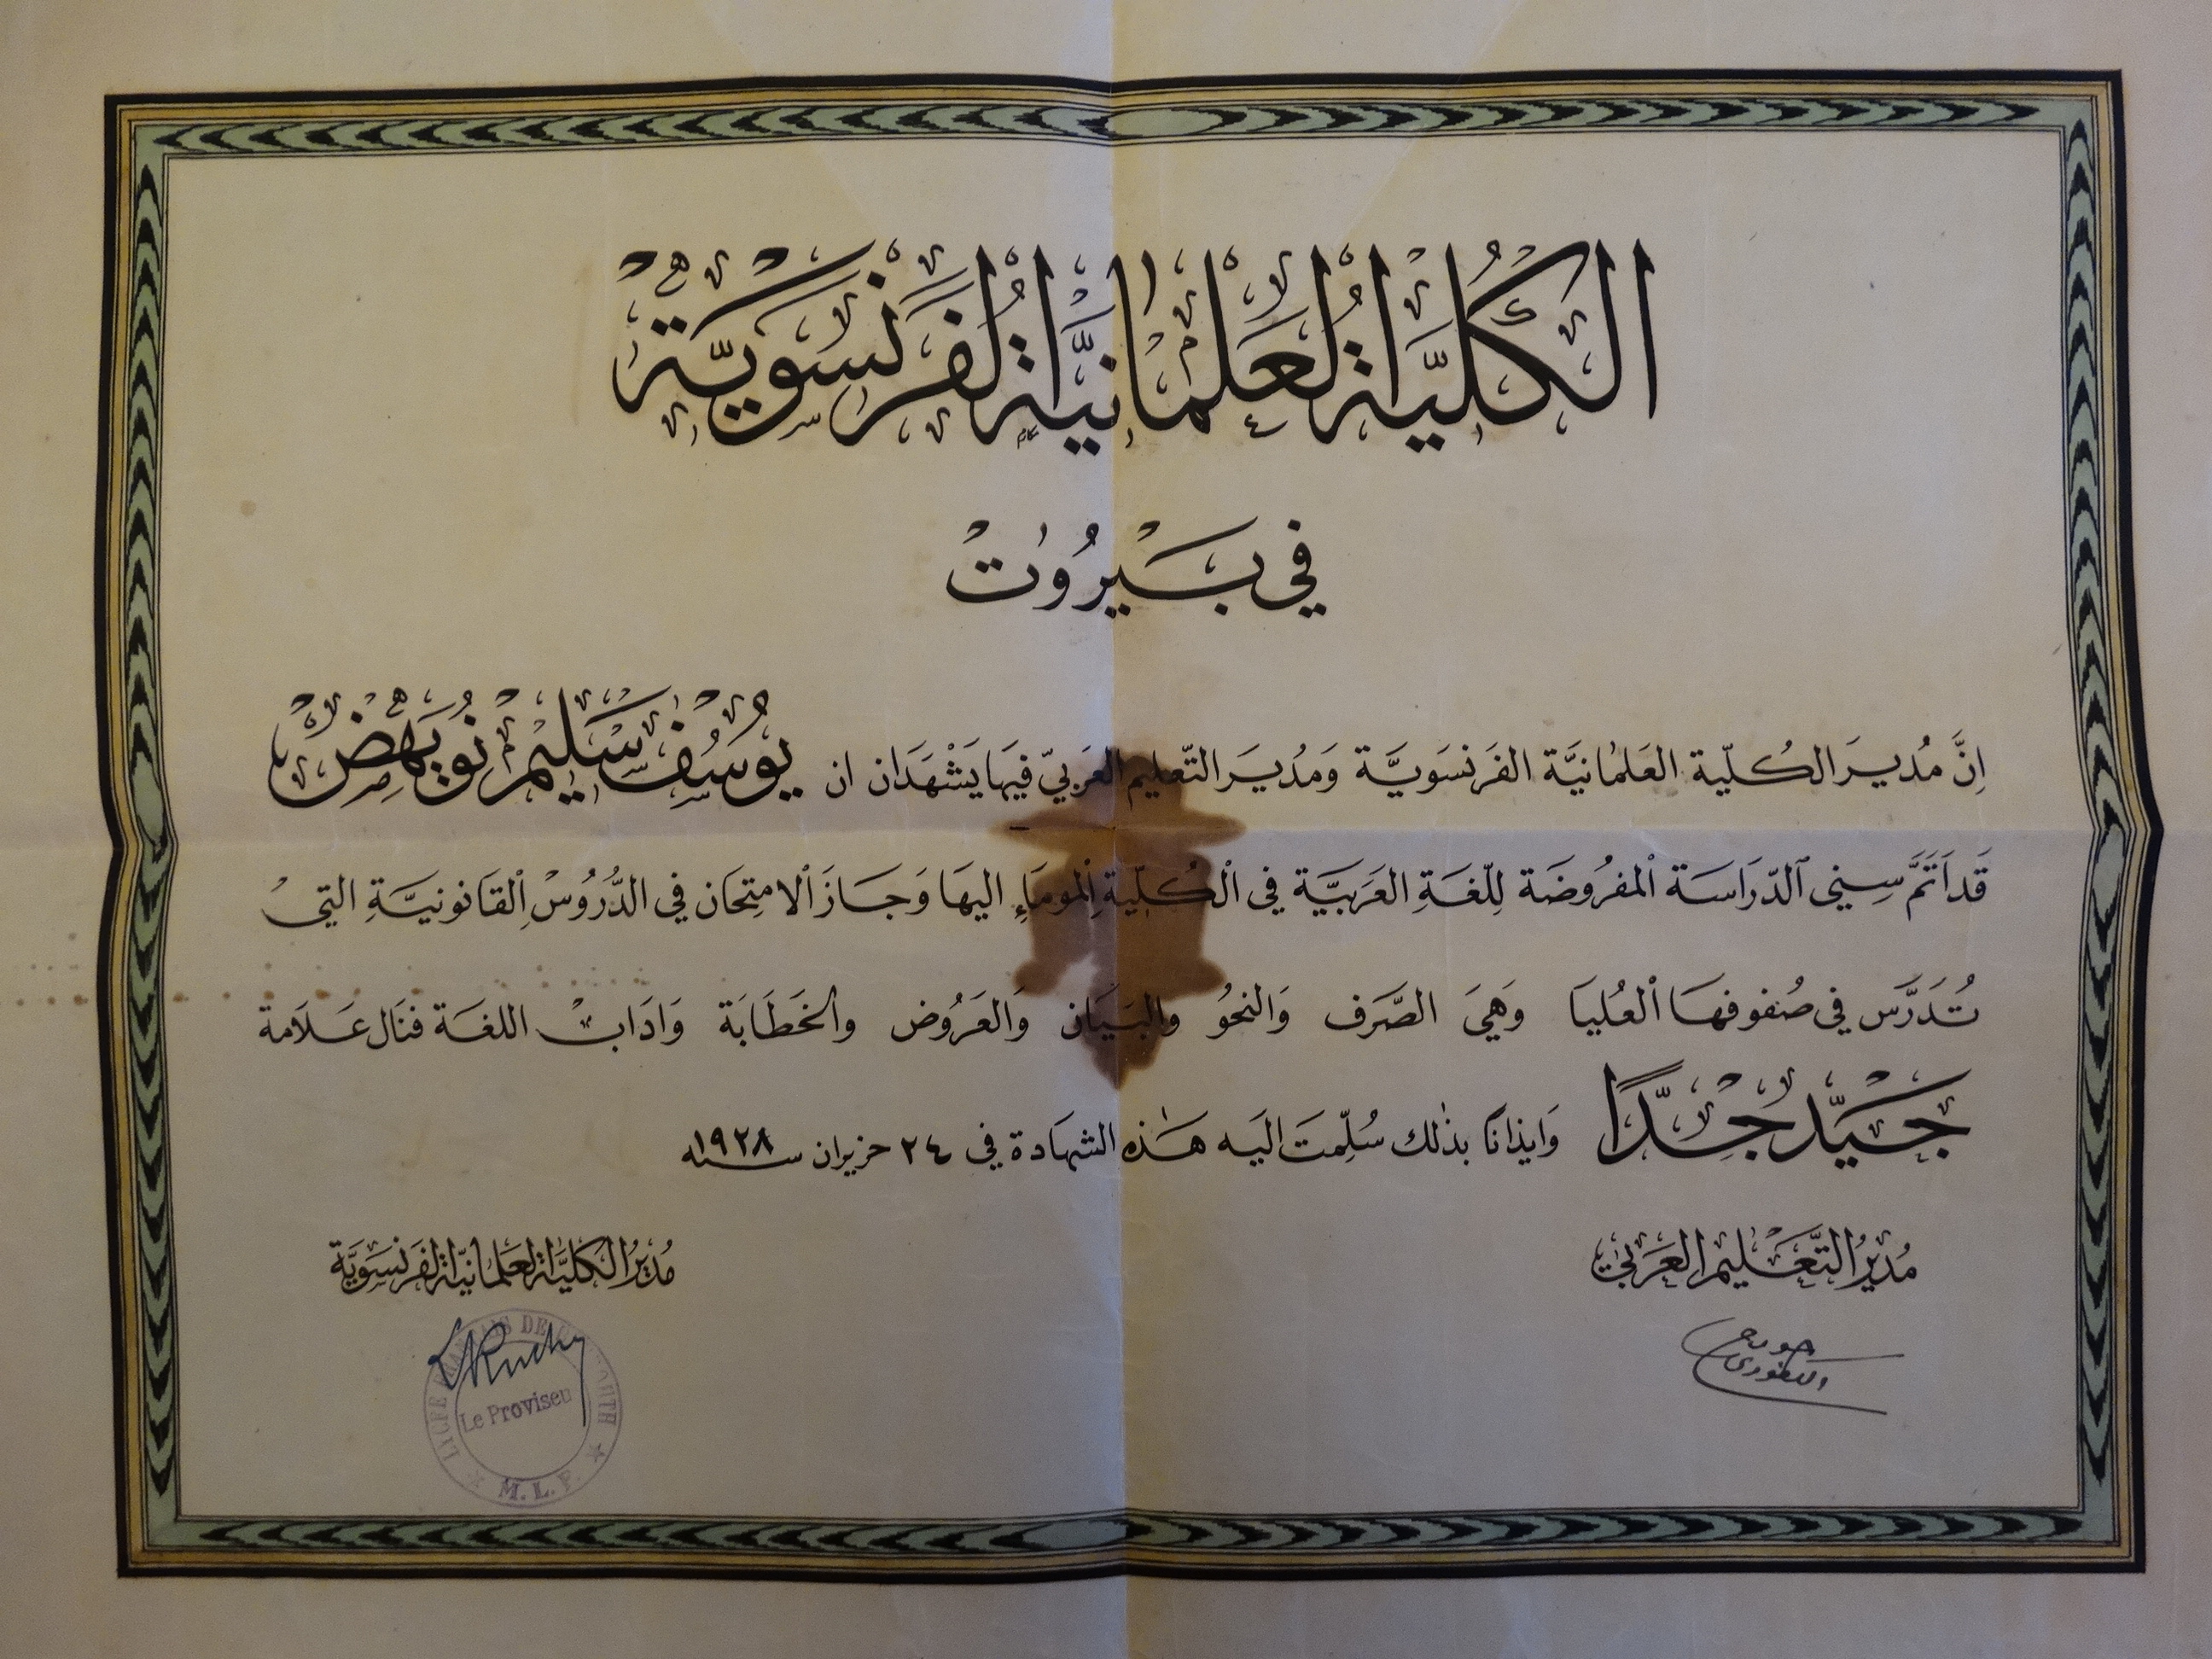 الكُلّيَّة العَلمانيَّة الفَرَنْسَويَّة
في بَيْرُوت
اِنَّ مُديرَ الكُلّية العَلمانيَّة الفَرنْسَويَّة وَمُديرَ التّعليم العَرَبيّ فيهَا يَشْهَدَان ان يُوسُف سَليم نُوَيهض
قَد اَتَمَّ سِني الدّرَاسَة المفرُوضَة لِلّغَةِ العَرَبيَّة في الْكُلّيةِ المُومَاءِ اليهَا وَجَازَ الامتِحَان في الدُّرُوسْ القَانونيَّةِ التي
تُدَرَّس في صُفوفهَا العُليَا وَهيَ الصَّرف وَالنحوُ والبَيَان وَالعَرُوض والخَطَابَة وَادَاب اللغَة فنَال عَلَامة
جَيّد جِدًّا وَايذانًا بذلك سُلّمتَ اليَه هَذه الشهادة في ٢٤ حزيران سنه ١٩٢٨
مُديرُ التَّعْليم العَرَبي
مُديرُ الكليَّة العَلمانيَّة الفَرنسَويَّة
جورج الكفوري
LYCÉE FRANÇAIS DE BEYROUTH
Le Proviseur
M. L. F.